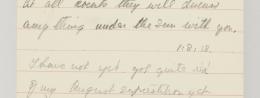 at all events they will discuss
anything under the sun with you.
1.8.18.
I have not yet got quite rid
of my August expedition yet